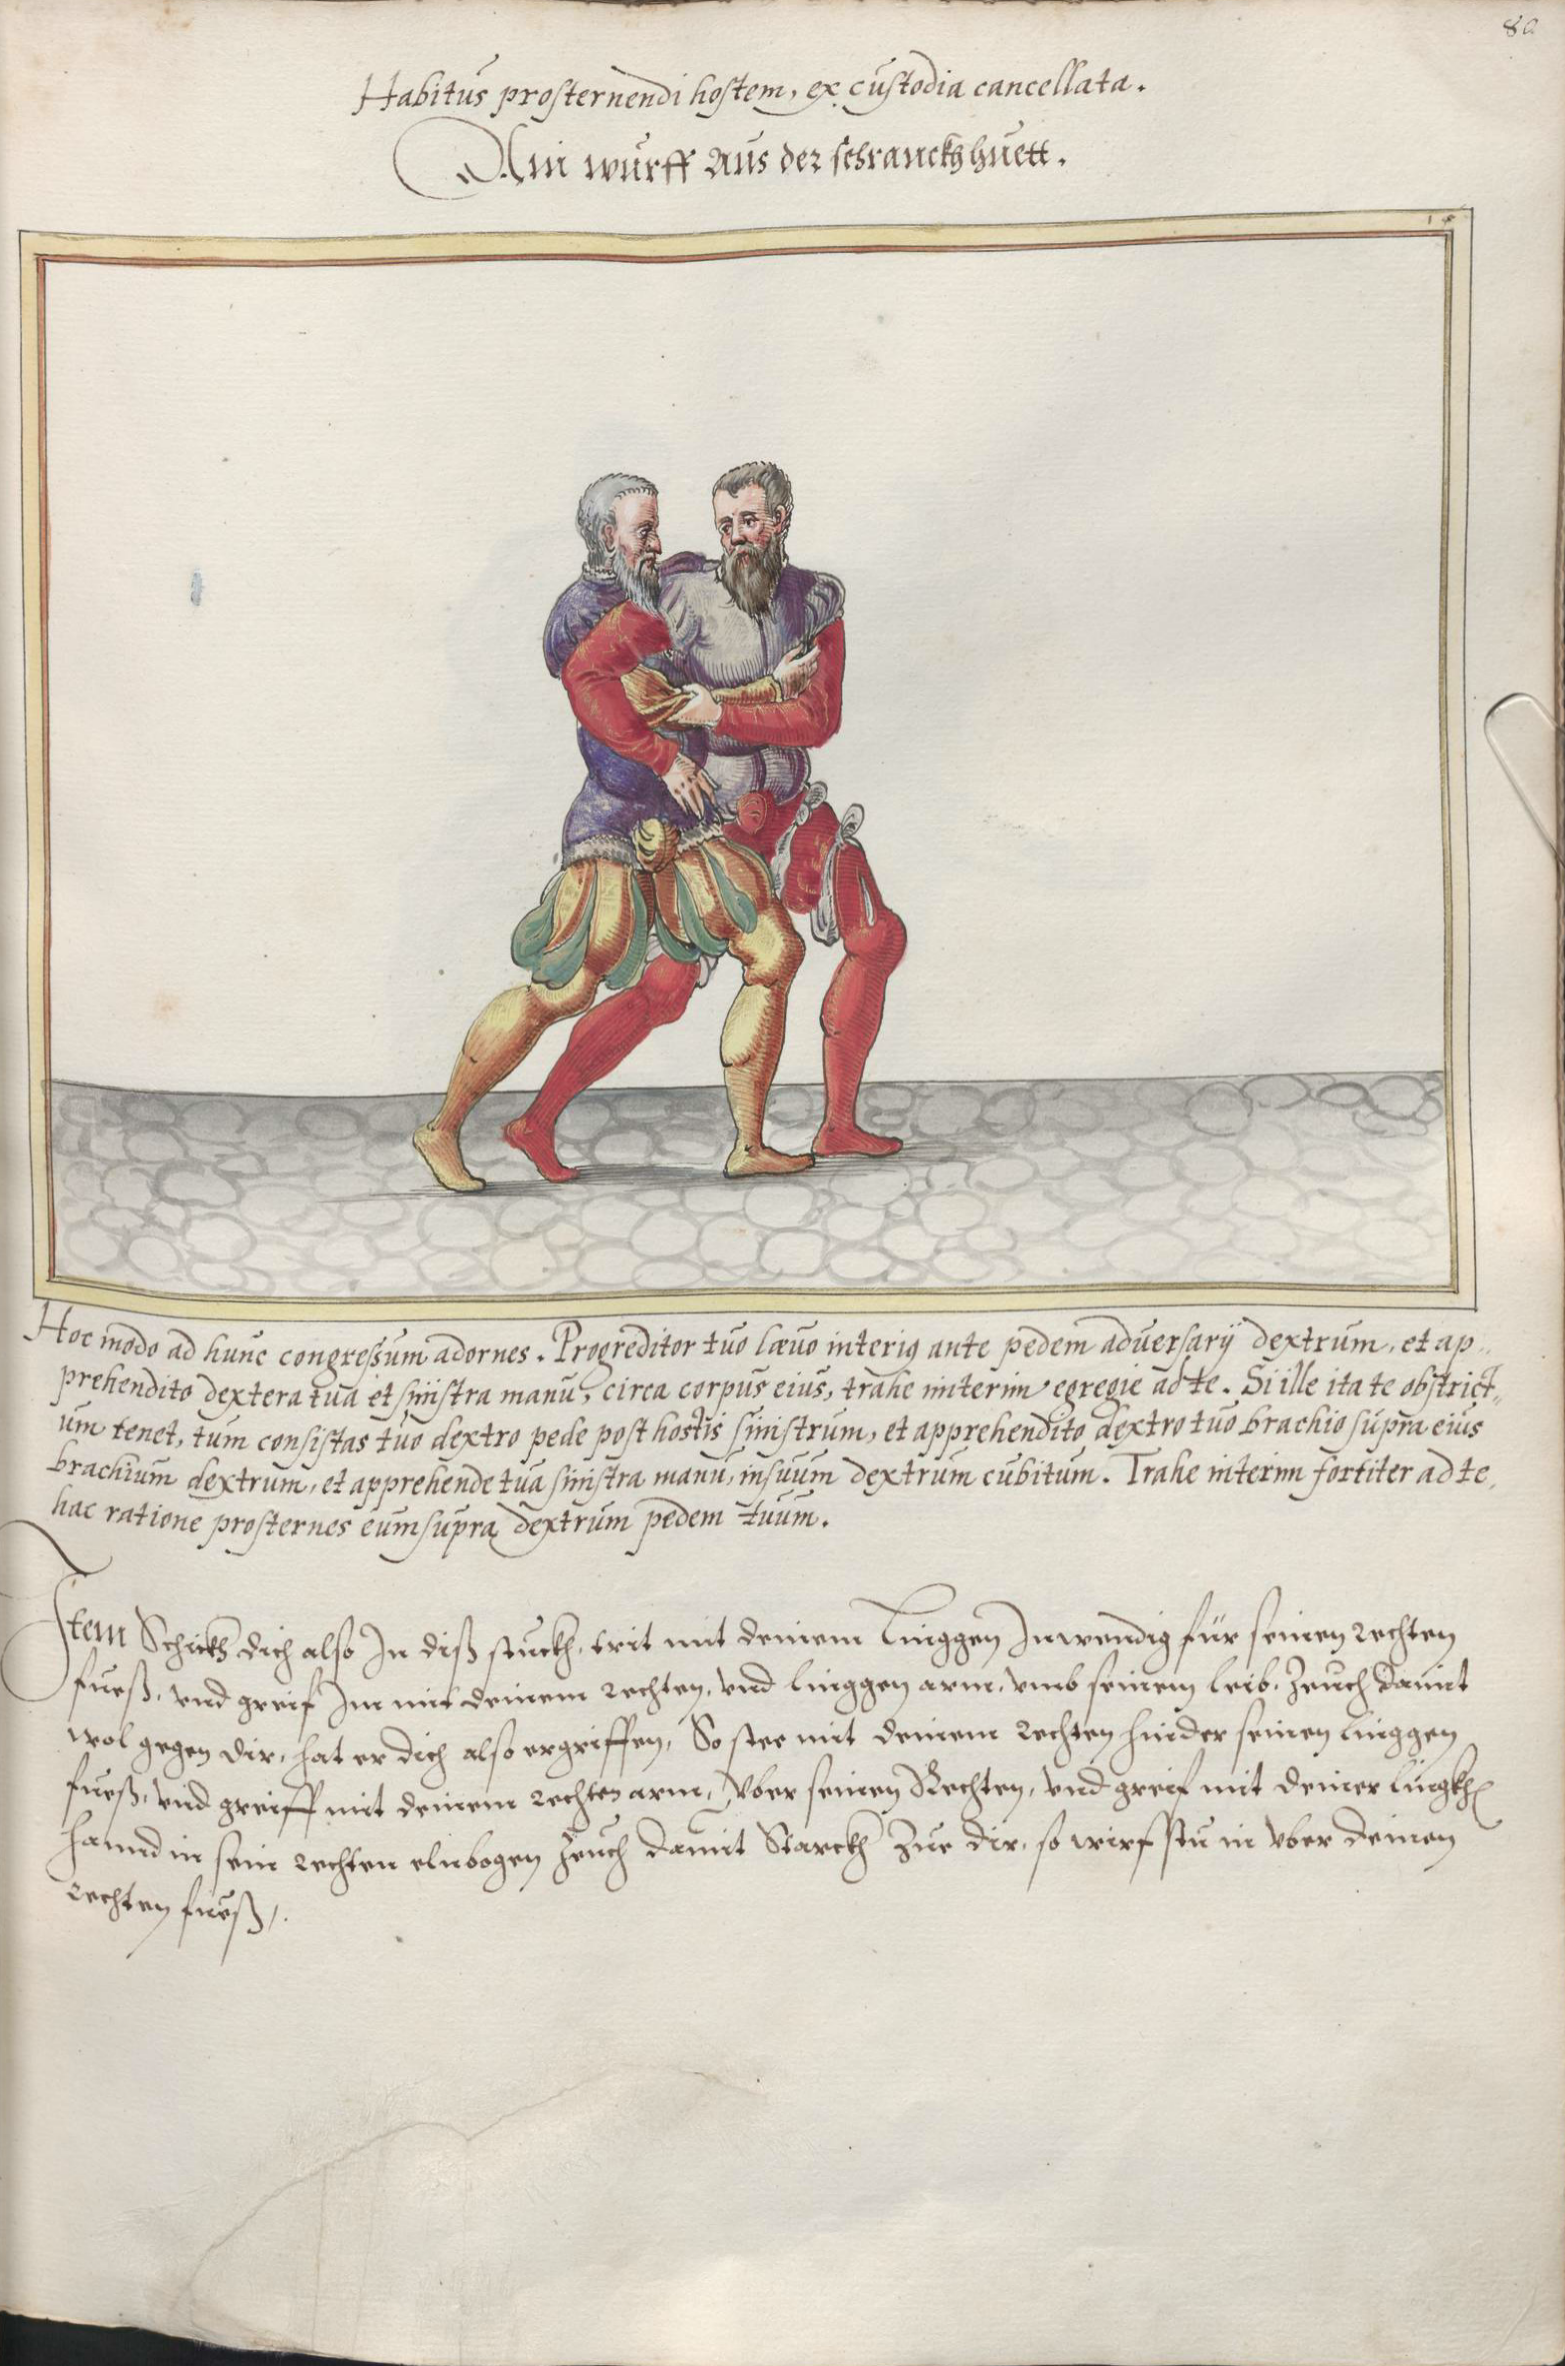 80
Habitus prosternendi hostem, ex custodia cancellata.
Ain wurff Aus der schranckhhuett.
Hoc modo ad hunc congressum adornes. Progreditor tuo lævo interius ante pedem adversarij dextrum, et ap„
prehendito dextera tua et sinistra manu, circa corpus eius, trahe interim egregie ad te. Si ille ita te obstrict„
um tenet, tum consistas tuo dextro pede post hostis sinistrum, et apprehendito dextro tuo brachio supra eius
brachium dextrum, et apprehende tua sinistra manu, in suum dextrum cubitum. Trahe interim fortiter ad te,
hac ratione prosternes eum supra dextrum pedem tuum.
Item Schickh dich also In diß stuckh, trit mit deinem linggen Inwendig für seinen rechten
fueß, vnd greif Im mit deinem rechten, vnd linggen arm, vmb seinem leib, Zeuch damit
wol gegen dir, hat er dich also ergriffen, So stee mit deinem rechten hinder seinen linggen
fueß, vnd greiff mit deinem rechten arm, Vber seinen Rechten, vnd greif mit deiner lingkh
hannd in sein rechten elnbogen Zeuch damit Starckh Zue dir, so wirfstu in vber deinen
rechten fueß,.